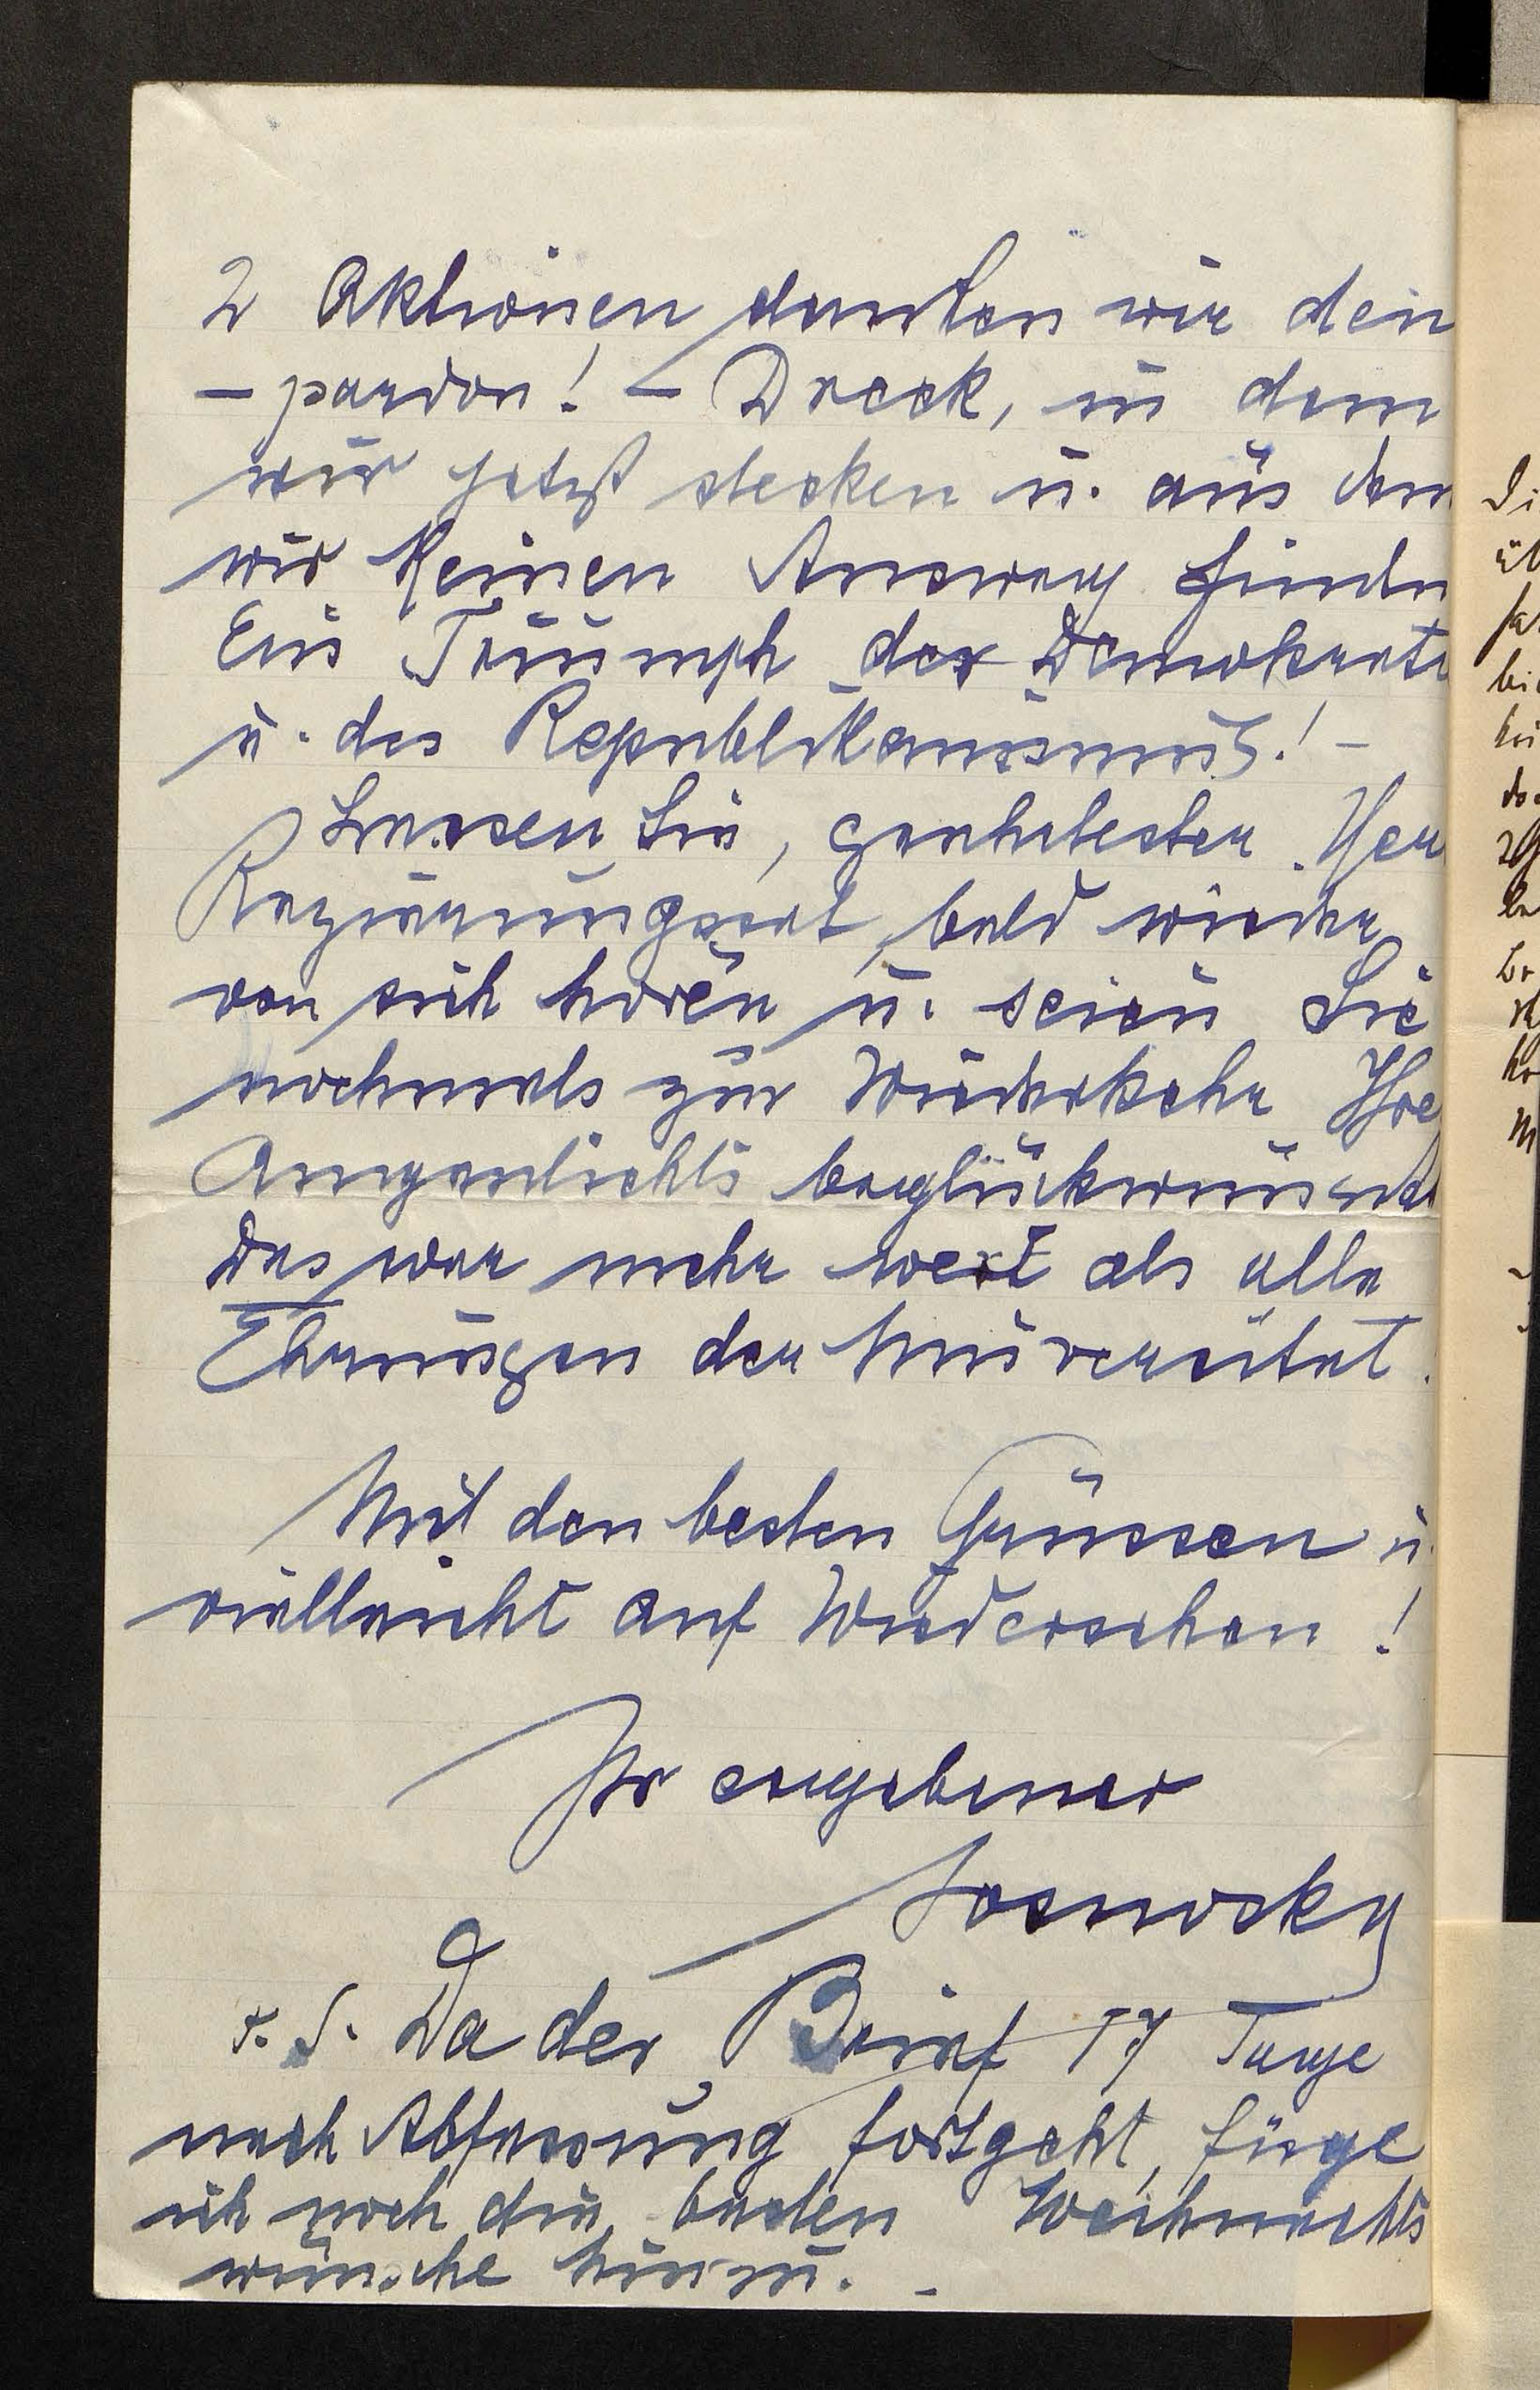 2 Aktionen danken wir den
– pardon! – Dreck, in dem
wir jetzt stecken u. aus dem
wir keinen Ausweg finden
Ein Triumph der Demokratie
u. des Republikanismus! –
Lassen Sie, geehrtester Herr
Regierungsrat, bald wieder
von sich hören u. seien Sie
nochmals zur Wiederkehr Ihres
Augenlichts beglückwünscht
Das war mehr wert als alle
Ehrungen der Universität.
Mit den besten Grüssen u.
vielleicht auf Wiedersehen!
Ihr ergebener
Sosnosky
P. S. Da der Brief 17 Tage
nach Abfassung fortgeht, füge
ich noch die besten Weihnachts
wünsche hinzu. –